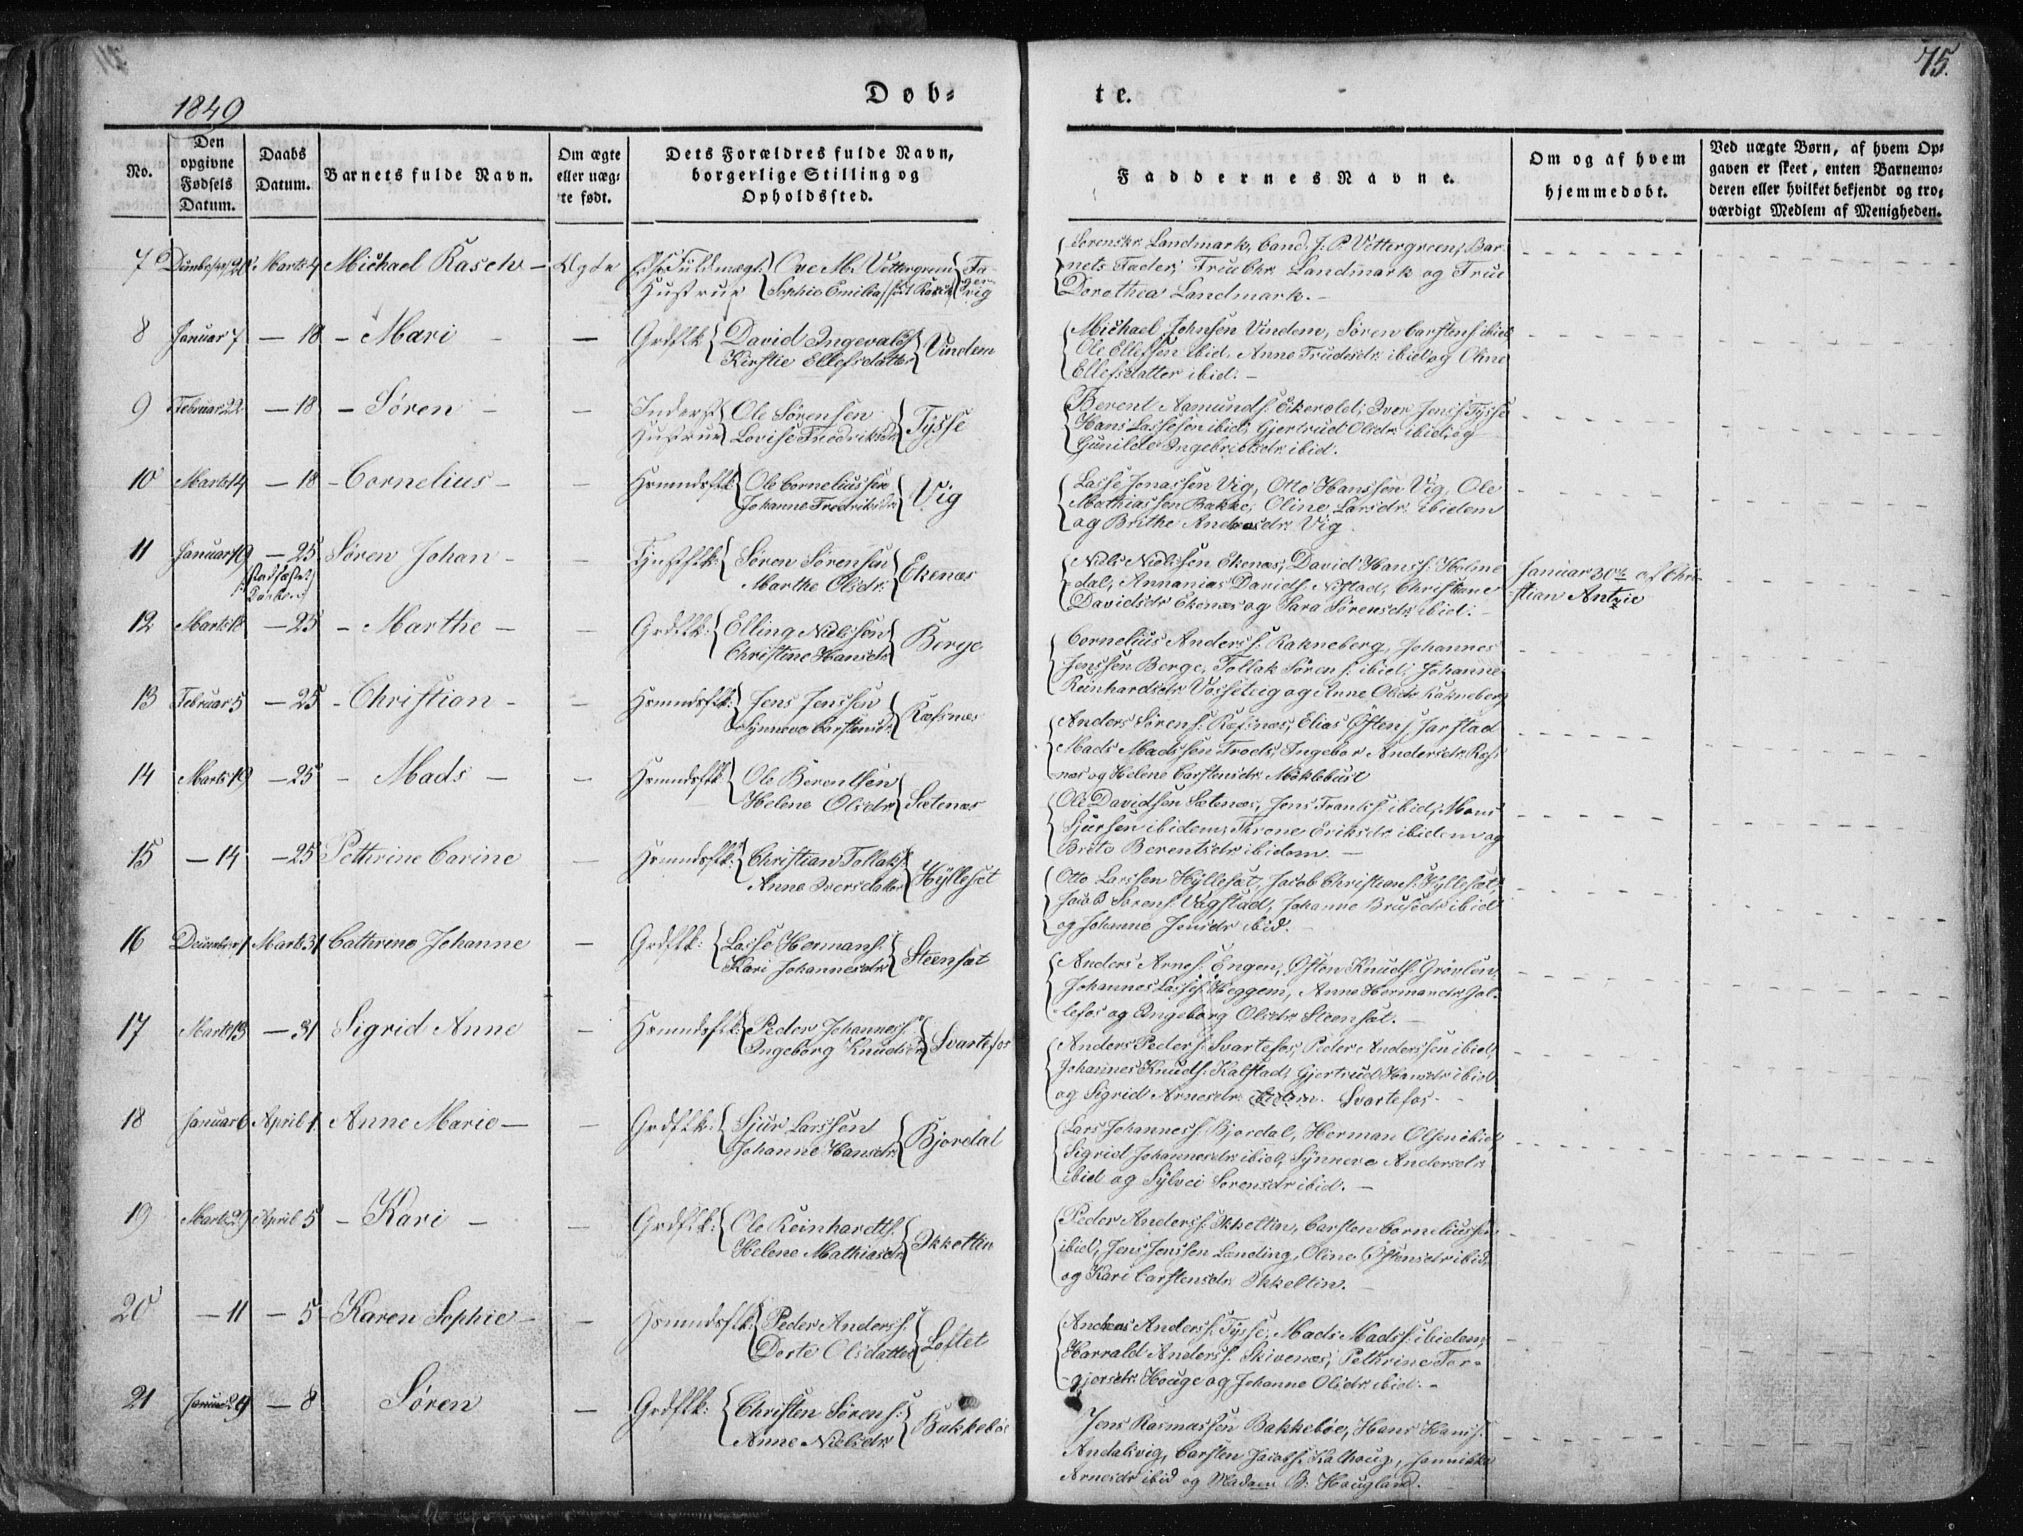 1849
Døb-
te.
75.
No.
Den opgivne Fødsels Datum.
Daabs Datum.
Barnets fulde Navn.
Om ægte eller uægte født.
Dets Forældres fulde Navn, borgerlige Stilling og Opholdssted.
Faddernes Navne.
Om og af hvem hjemmedøbt.
Ved uægte Børn, af hvem Opgaven er skeet, enten Barnemoderen eller hvilket bekjendt og troværdigt Medlem af Menigheden.
7 Marts 4 Michael Rasch - Ægte Ove M. Vettergreen
Hustrue Sophie Emilia
Sorenskr. Landmark, Cand. J. P. Vettergreen, Bar-
nets Fader, Frue Chr. Landmark og Frue
Dorothea Landmark. -
8 Januar 7 - 18 - Mari - - Grdflk: David Ingevalds.
Kirstie Ellefsdatter Vindem
Michael Johnsen Vindem, Søren Carstens. ibid.
Ole Ellefsen ibid. Anne Frudsdr. ibid og Oline
Ellefsdatter ibid. -
9 Februar 22 - 18 - Søren - - Inderst Ole Sørensen
Hustrue Lovise Fredriksdr. Tysse
Berent Aamunds. Eikevold, Iver Jens. Tysse
Hans Lassesen ibid, Gjertrud Olsdr. ibid, og
Gunilde Ingebrietsdr. ibid.
10 Marts 14 - 18 - Cornelius - - Hsmndsflk Ole Corneliussen
Johanne Fredriksdr. Vig
Lasse Jonassen Vig, Otto Hanssen Vig, Ole
Mathiassen Bakke, Oline Larsdr. ibidem
og Brithe Andersdr. Vig
11 Januar 19 - 25 Søren Johan - - Tjnstflk: Søren Sørensen
Marthe Olsdr. Ekenæs
Niels Nielssen Ekenæs, David Hans. Holme-
dal, Annanias Davids. Nistad, Christiane
Davidsdr. Ekenæs og Sara Sørensdr. ibid. -
Januar 30te af Chri-
stian Antzie
12 Marts 18 - 25 - Marthe - - Grdflk: Elling Nielssen
Christine Hansdr. Berge
Cornelius Anders. Rakneberg, Johannes
Jenssen Berge, Tollak Sørens. ibid, Johanne
Reinhardsdr. Vasseteig og Anne Olsdr. Rakneberg
13 Februar 5 - 25 - Christian - - Hsmndsflk: Jens Jenssen
Synneve Carstensdr. Ræfsnæs
Anders Sørens. Ræfsnæs, Elias Østens. Jarstad
Mads Madssen Træds, Ingebor Andersdr. Ræfs-
næs og Helene Carstensdr. Møklebust
14 Marts 19 - 25 - Mads - - Hsmndsflk Ole Berentsen
Helene Olsdr. Sætenæs
Ole Davidsen Sætenæs, Jens Franks. ibid, Mons
Sjursen ibidem, Throne Eriksdr. ibidem og
Brite Berentsdr. ibidem. -
15 - 14 - 25 Pethrine Carine - Hsmndsflk: Christian Tollaks.
Anne Iversdatter Hyllesæt
Otto Larssen Hyllesæt, Jacob Christians. Hyllesæt,
Jacob Sørens. Vagstad, Johanne Brusedr. ibid
og Johanne Jensdr. ibid. -
16 December 1 Marts 31 Cathrine Johanne - Grdflk: Lasse Hermans.
Kari Johannesdr. Steensæt
Anders Arnes. Engen, Østen Knuds. Grøvlen,
Johannes Lasses. Heggem, Anne Hermansdr. Jal-
lefos og Ingeborg Olsdr. Steensæt. -
17 Marts 13 - 31 Sigrid Anne - Hsmndsflk Peder Johanness.
Ingeborg Knudsdr. Svartefos
Anders Peders. Svartefos, Peder Anderssen ibid,
Johannes Knuds. Kalstad, Gjertrud Hansdr. ibid
og Sigrid Arnesdr. Svartefos. -
18 Januar 6 April 1 Anne Marie - - Grdflk: Sjur Larssen
Johanne Hansdr. Bjordal
Lars Johanness. Bjordal, Herman Olsen ibid,
Sigrid Johannesdr. ibid, Synneve Andersdr.
ibid og Sylvei Sørensdr. ibid. -
19 Marts 29 April 5 - Kari - - Grdflk: Ole Reinhardts.
Helene Mathiasdr. Ikkeltin
Peder Anders. Ikkeltin, Carsten Corneliussen
ibid, Jens Jenssen Lænding, Oline Østensdr. ibid,
og Kari Carstensdr. Ikkeltin. -
20 - 11 - 5 Karen Sophie - - Hsmndsflk: Peder Anders.
Dorte Olsdatter Loftet
Andreas Anders. Tysse, Mads Mads. ibidem,
Harrald Anders. Skivenæs, Pethrine Tor-
gjersdr. Houge og Johanne Olsdr. ibid. -
21 Januar 29 - 8 Søren - Grdflk: Christen Sørens.
Anne Nielsdr. Bakkebøe
Jens Rasmussen Bakkebøe, Hans Hans.
Andalsvig, Carsten Jacobs. Kalhoug, Jannikke
Arnesdr. ibid og Madam B. Hougland.